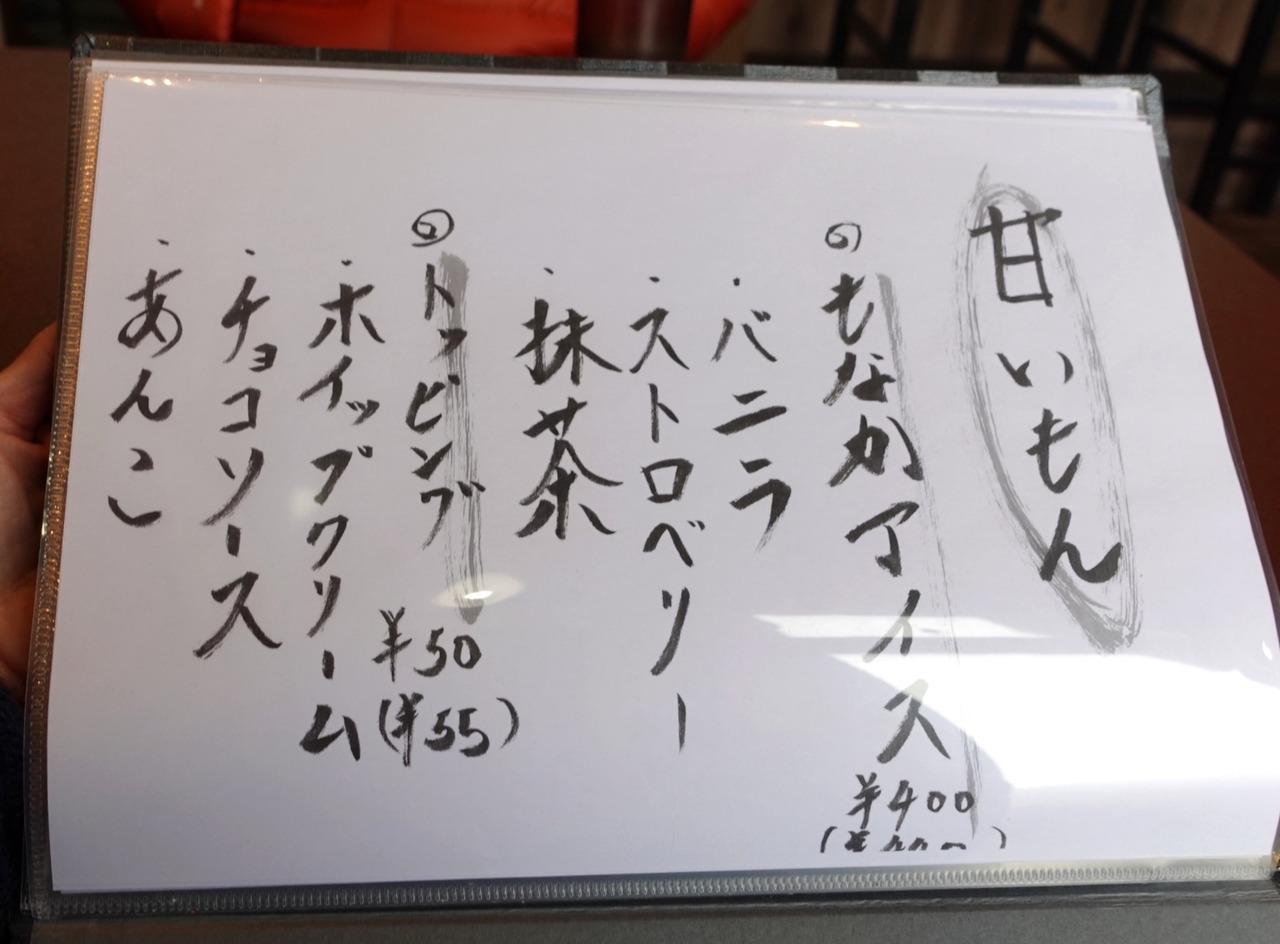 甘いもん
もなかアイス
¥400
・バニラ
・ストロベリー
・抹茶
トッピング
¥50
(¥55)
・ホイップクリーム
・チョコソース
・あんこ